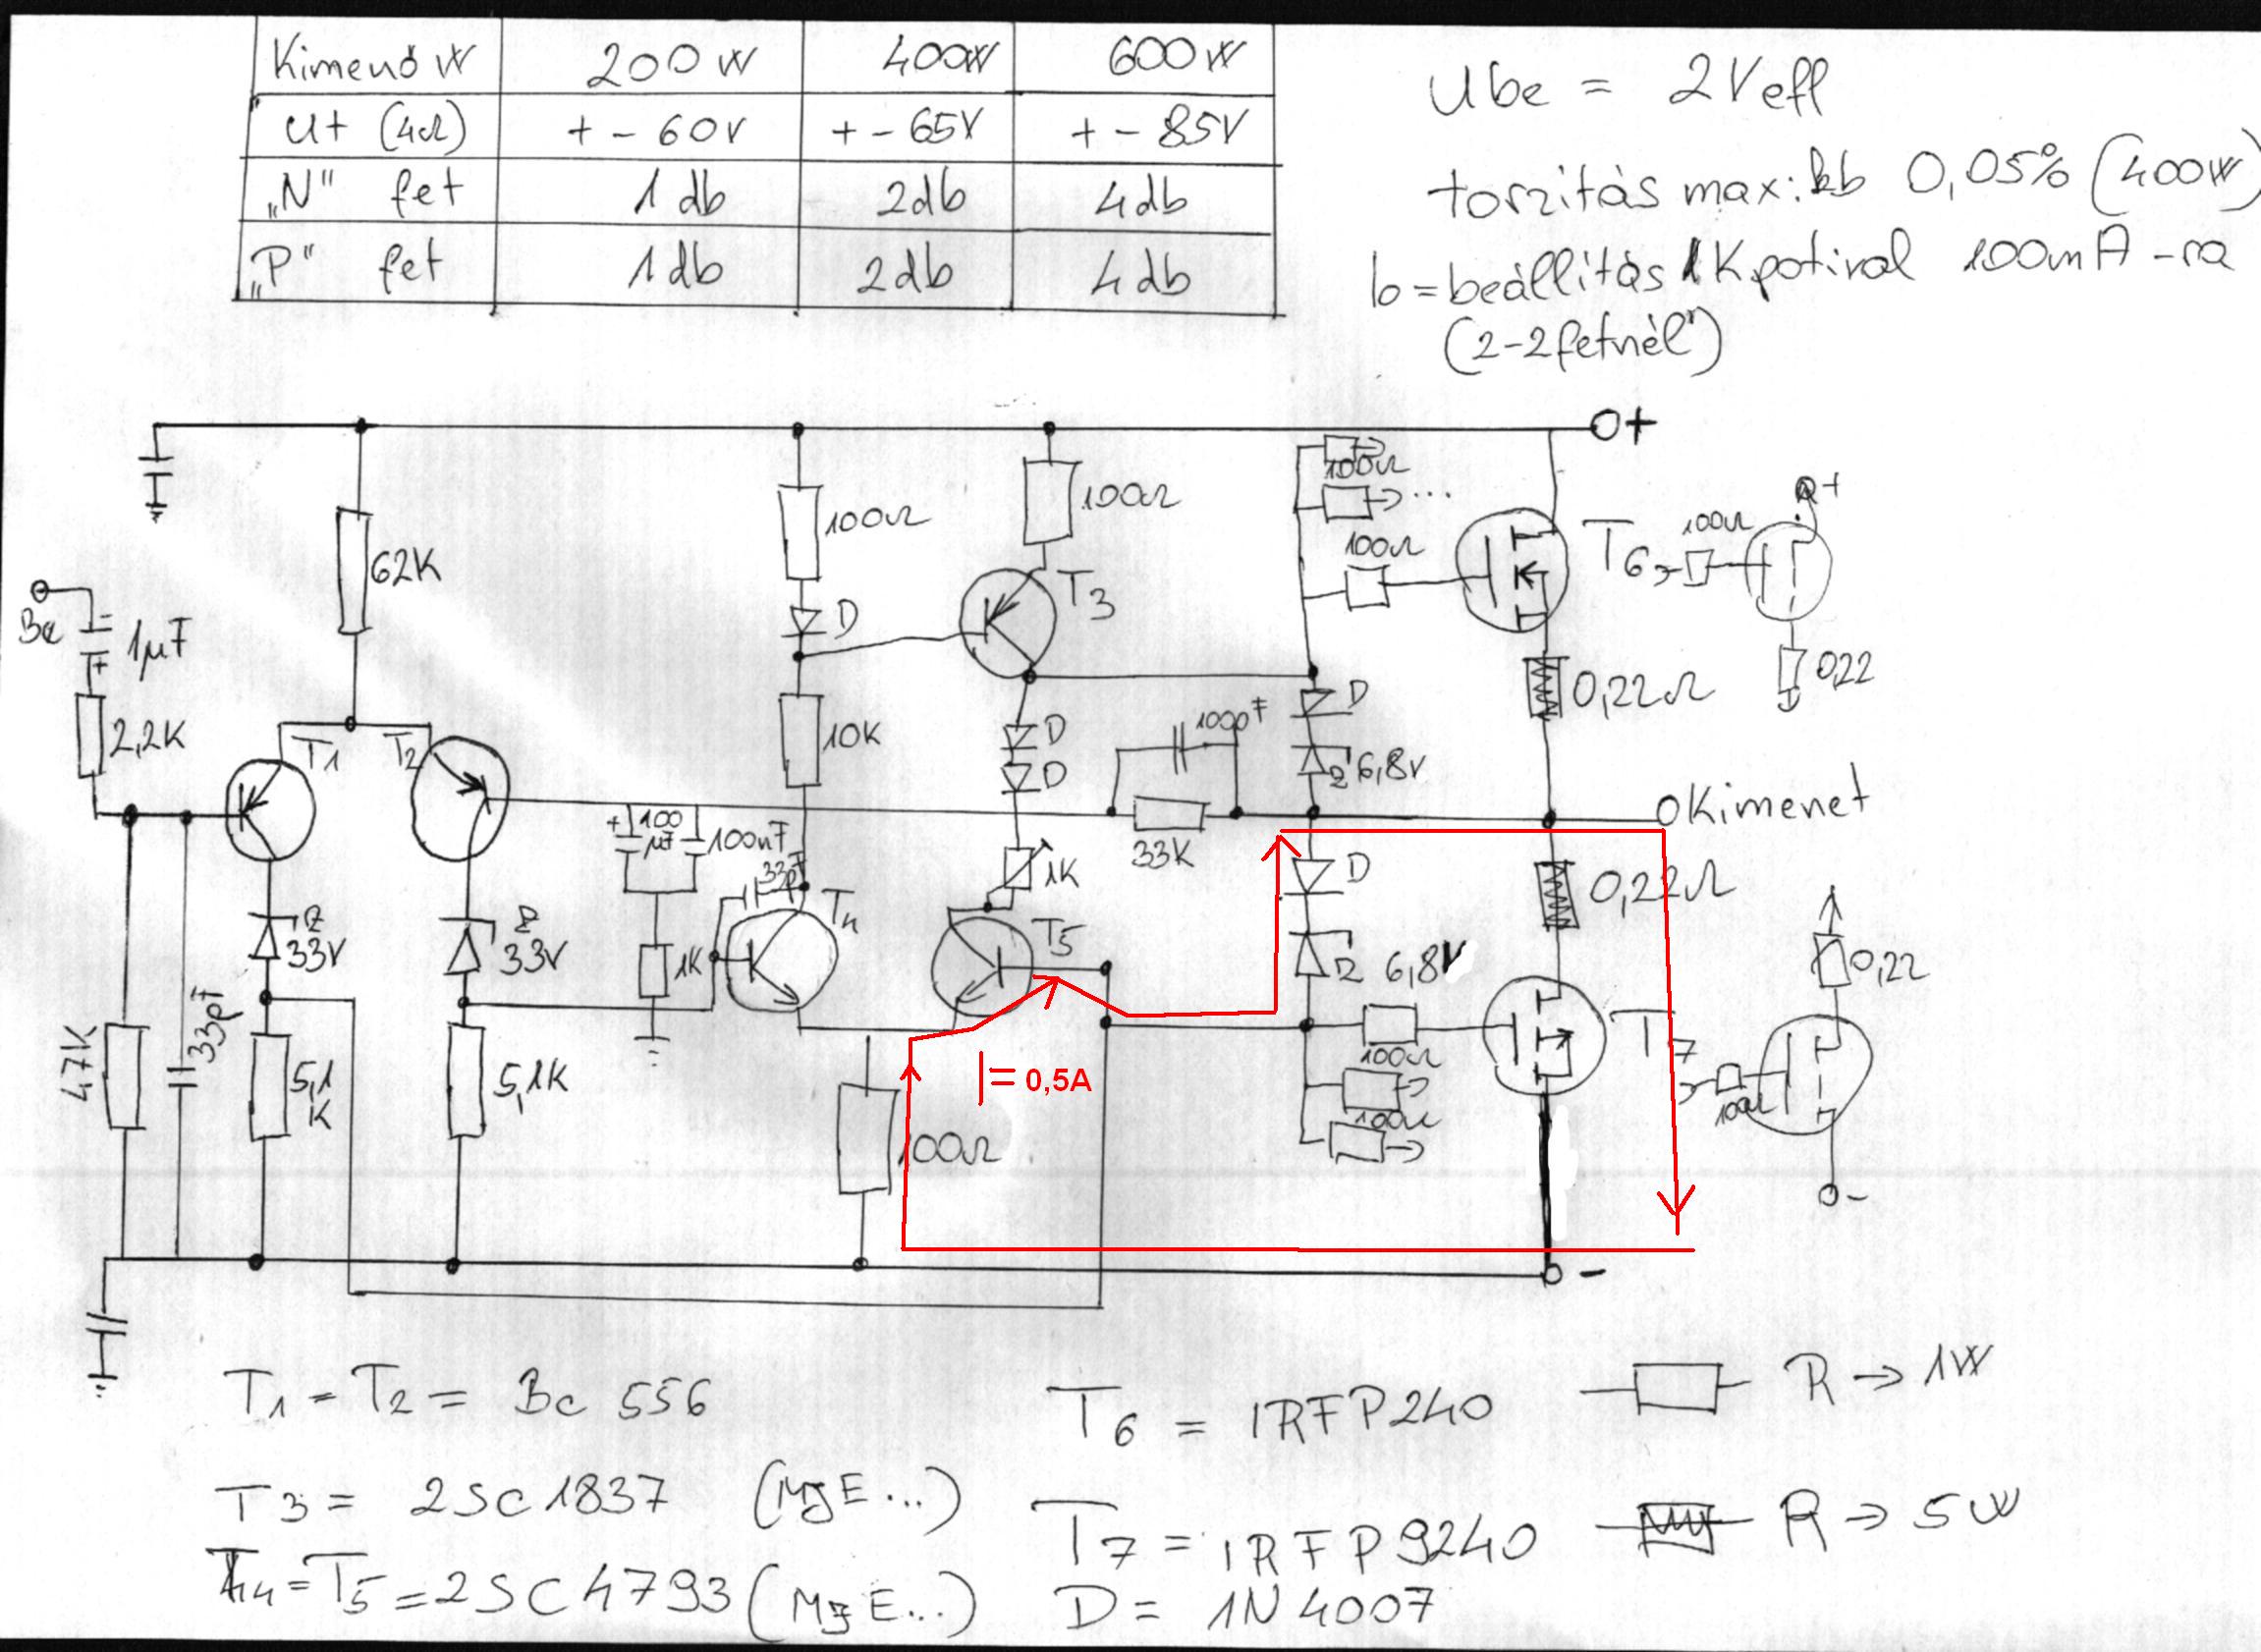 Kimenő W 200W 400W 600W
Ut (4Ω) +-60V +-65V +-85V
„N" fet 1db 2db 4db
„P" fet 1db 2db 4db
Ube = 2Veff
torzitás max: kb 0,05% (400W)
Io=beállitás 1K potival 100mA-ra
(2-2fetnél)
O+
100Ω
100Ω
100Ω
100Ω
T6
100Ω
+
62K
D
T3
Be
1µF
+
0,22Ω
0,22
2,2K
T1
T2
10K
D
D
100pF
D
Z 6,8V
+ 100 µF
100nF
33K
Kimenet
33pF
T4
1K
D
0,22Ω
Z 33V
Z 33V
1K
T5
Z 6,8V
0,22
47K
33pF
5,1 K
5,1K
I= 0,5A
100Ω
T7
100Ω
100Ω
100Ω
-
-
T1 = T2 = Bc 556
T3 = 2SC1837 (MJE...)
T4=T5=2SC4793 (MJE...)
T6 = IRFP240
T7 = IRFP9240
D = 1N4007
R → 1W
R → 5W